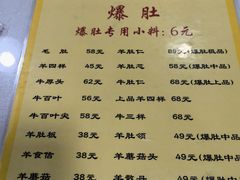 爆肚
爆肚专用小料：6元
毛肚 58元 羊肚仁 89元(爆肚极品)
羊四样 45元 羊肚芯 58元(爆肚中品)
牛厚头 62元 牛肚仁 68元(爆肚上品)
牛百叶 56元 上品羊四样 68元
牛百叶尖 58元 羊三样 68元
羊肚板 38元 羊肚领 49元(爆肚中品)
羊食信 38元 羊蘑菇头 49元(爆肚中品)
羊蘑菇 38元 49元(爆肚中品)